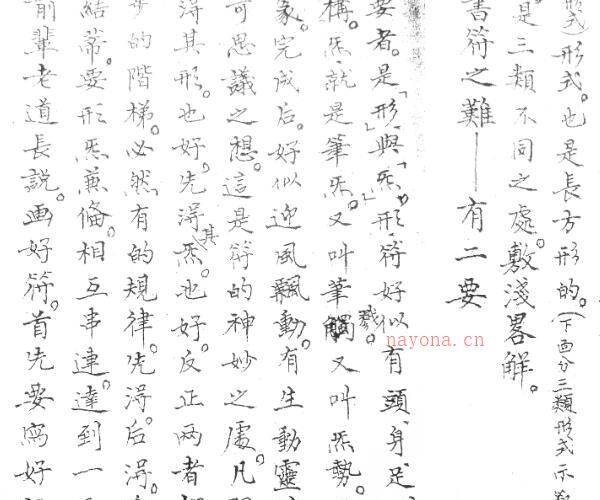 形式)形式。也是長方形的。(下面分三類形式示
是三類不同之處。敷淺畧解。
書符之難——有二要
要者。是「形」與「炁」形、符好似有頭、身、足、
構。炁、就是筆炁。又叫筆觸。又叫炁勢。
象。完成后。好似迎風飄動。有生動靈
可思議之想。這是符的神妙之處。凡
得其形也好。先得其炁。也好。反正两者
步的階梯。必然有的規律。先得。后得。
結蒂。要形炁兼備。相互串連。達到一
前輩老道長説。画好符。首先要寫好
nayona.cn